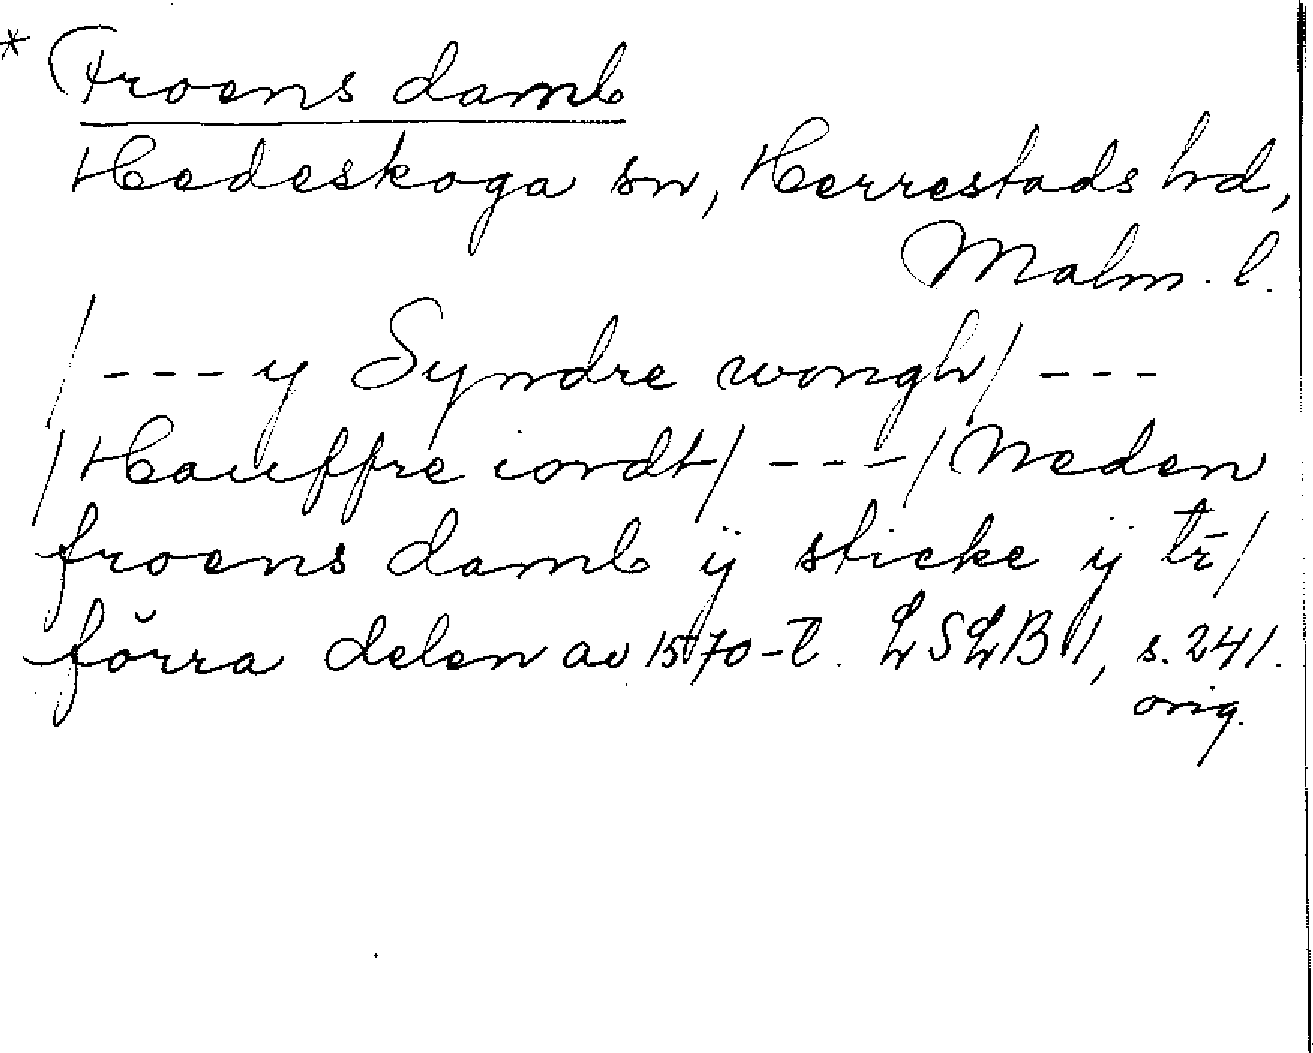 * Froens damb
Hedeskoga sn, Herrestads hd,
Malm. l.
/ --- y Syndre wongh / ---
/ Hauffre iordt / --- / Neden
froens damb ÿ sticke ÿ tr̄ /
förra delen av 1570-t. LSLB 1, s. 241.
orig.